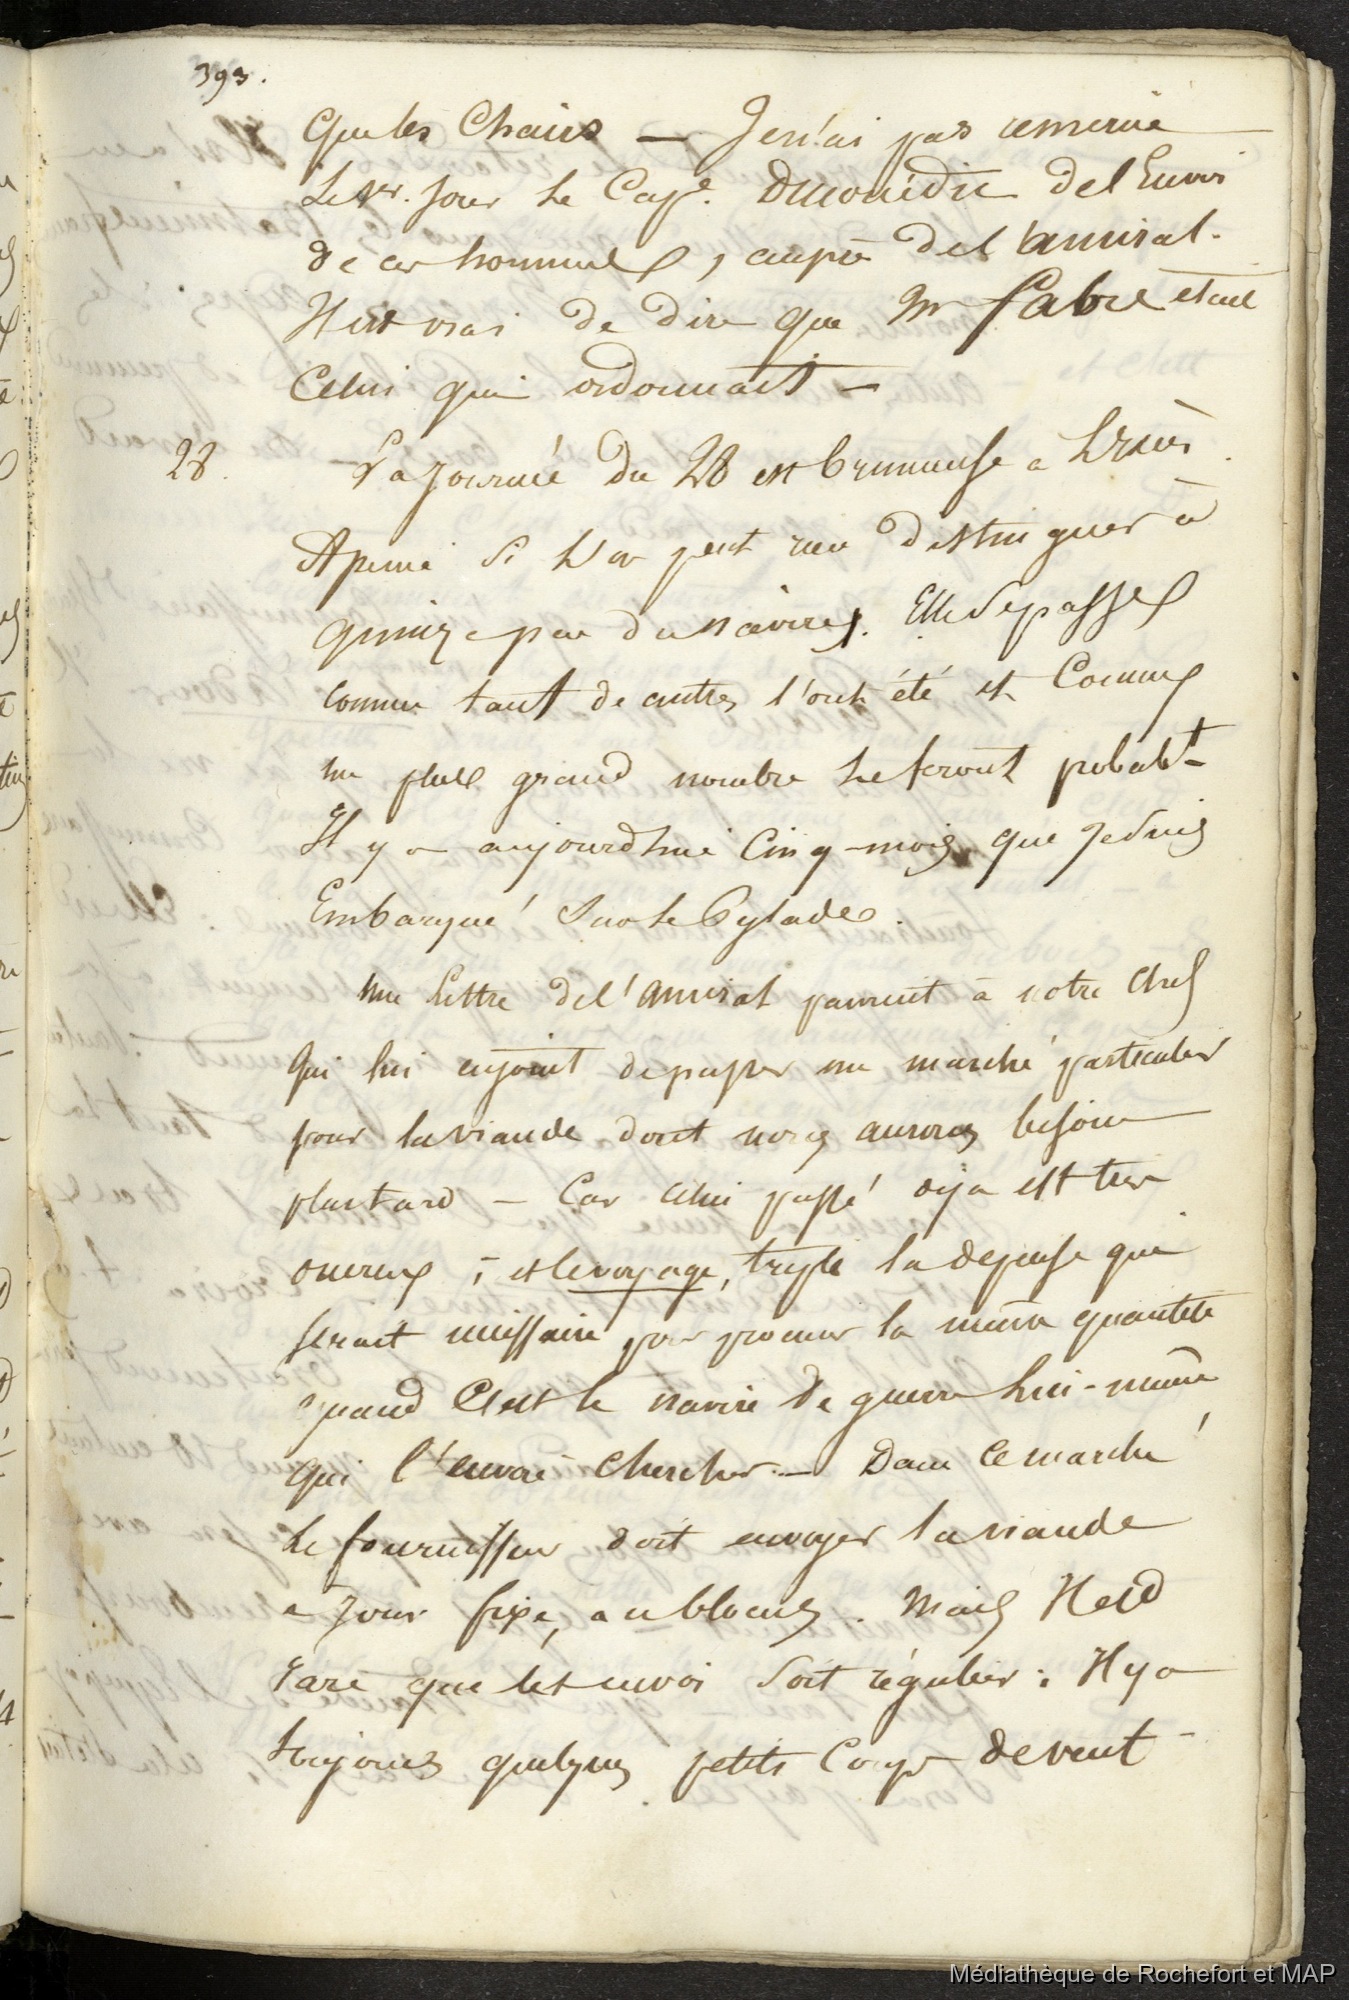 393.
Que les Chairs — Je n'ai pas remercié
le 1er. jour le Cape. Ducouëdic de l'Envoi
de ces hommes, auprès de l'amiral.
Il est vrai de dire que Mr fabre était
Celui qui ordonnait —
28.
La Journée du 28 est brumeuse à l'Excès.
A peine si l'on peut rien distinguer à
quinze pas du navire. Elle se passe
comme tant de autres l'ont été et Comme
un plus grand nombre le feront probablt
Il y a aujourd'hui Cinq-mois que Je suis
Embarqué sur le Pylade.
une Lettre de l'amiral parvient à notre Chef
Qui lui enjoint de passer un marché particulier
pour la viande dont nous aurons besoin
plus tard — Car celui passé déja est très
onereux ; et le voyage, triple la depense qui
serait necessaire pour procurer la même quantité
quand C'est le navire de guerre lui-même
qui l'envoie chercher. — Dans Ce marché
le fournisseur doit envoyer la viande
a Jour fixé, au blocus. Mais Il est
rare que cet envoi soit régulier : Il y a
toujours quelques petits Coups de vent
Médiathèque de Rochefort et MAP